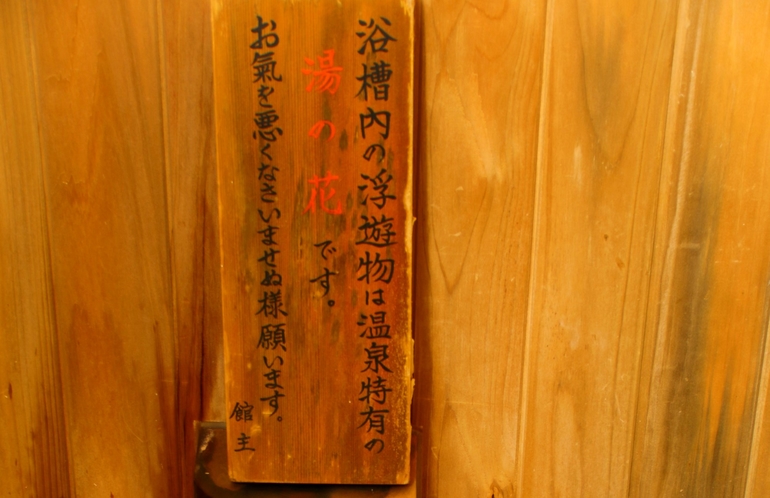 浴槽内の浮遊物は温泉特有の
湯の花です。
お氣を悪くなさいませぬ様願います。
館主